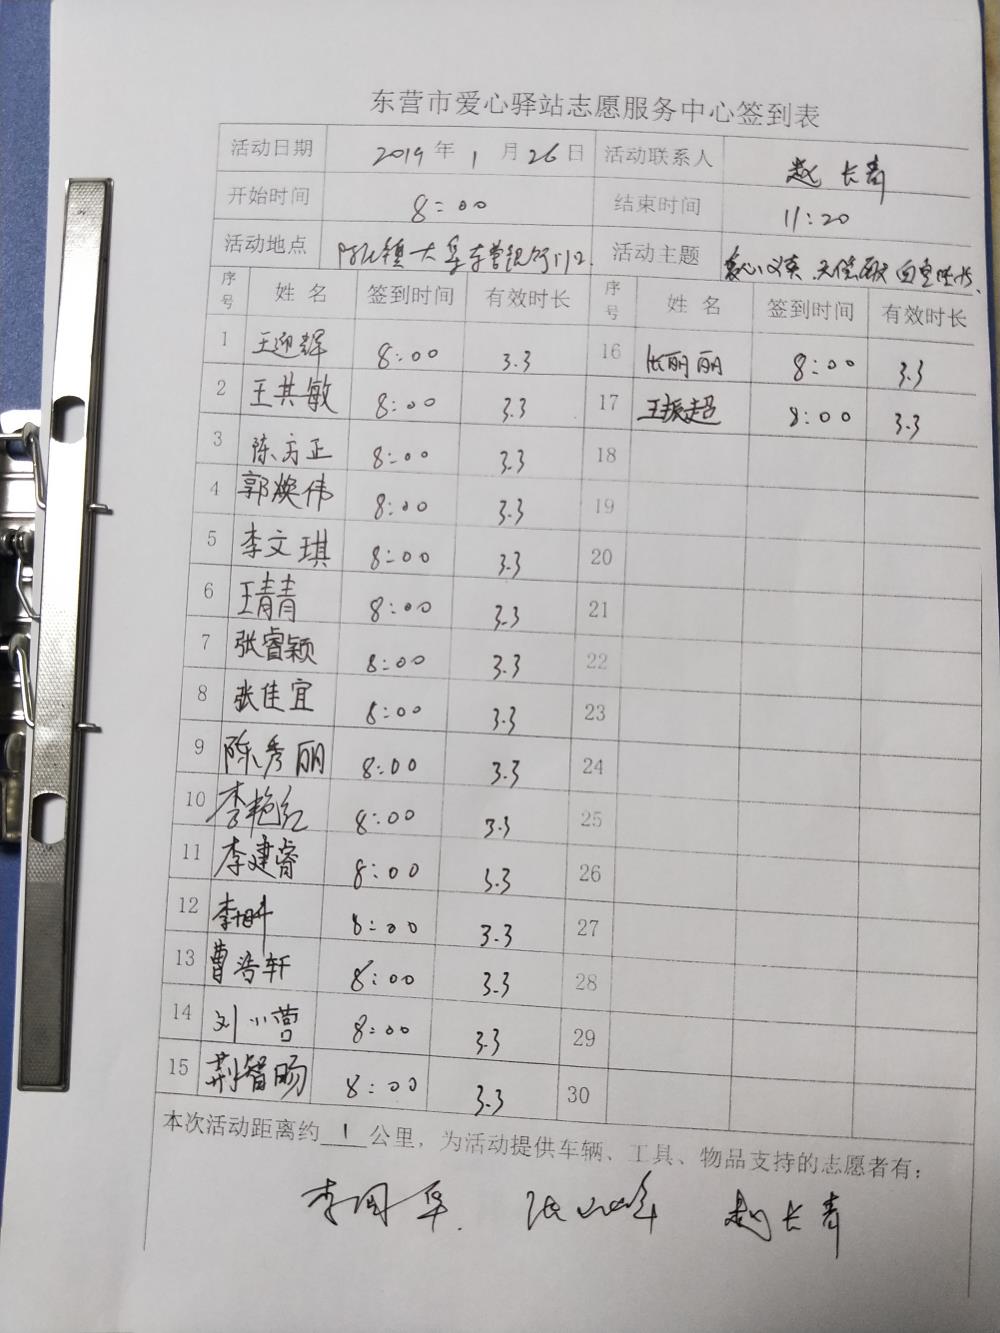 东营市爱心驿站志愿服务中心签到表
活动日期 2019年1月26日 活动联系人 赵长青
开始时间 8:00 结束时间 11:20
活动地点 镇大 东营银行门口. 活动主题 爱心义卖
序号 姓名 签到时间 有效时长 序号 姓名 签到时间 有效时长
1 王迎辉 8:00 3.3 16 张丽丽 8:00 3.3
2 王其敏 8:00 3.3 17 王振超 8:00 3.3
3 陈方正 8:00 3.3 18
4 郭焕伟 8:00 3.3 19
5 李文琪 8:00 3.3 20
6 王青青 8:00 3.3 21
7 张睿颖 8:00 3.3 22
8 张佳宜 8:00 3.3 23
9 陈秀丽 8:00 3.3 24
10 李艳红 8:00 3.3 25
11 李建睿 8:00 3.3 26
12 李 8:00 3.3 27
13 曹浩轩 8:00 3.3 28
14 刘小营 8:00 3.3 29
15 荆智旸 8:00 3.3 30
本次活动距离约 1 公里，为活动提供车辆、工具、物品支持的志愿者有：
李国华. 张峰 赵长青